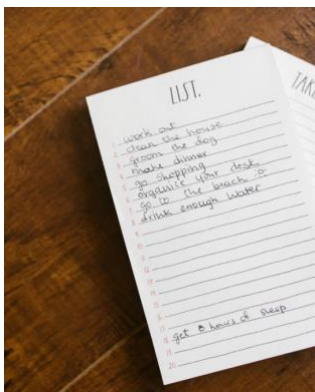 LIST.
TAKE
1. work out
2. clean the house
3. groom the dog
4. make dinner
5. go shopping
6. organise your desk
7. go to the beach :)
8. drink enough water
9.
10.
11.
12.
13.
14.
15.
16.
17. get 8 hours of sleep
18.
19.
20.